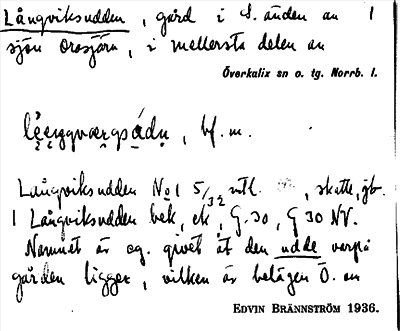 Långviksudden, gård i S. änden av 1
sjön Orasjärv, i mellersta delen av
Överkalix sn o. tg. Norrb. l.
bf. m.
Långviksudden No 1 5/32 mtl. , skatte, jb.
1 Långviksudden bek, ek, G. 30, G 30 NV.
Namnet är eg. givet åt den udde varpå
gården ligger, vilken är belägen Ö. av
EDVIN BRÄNNSTRÖM 1936.